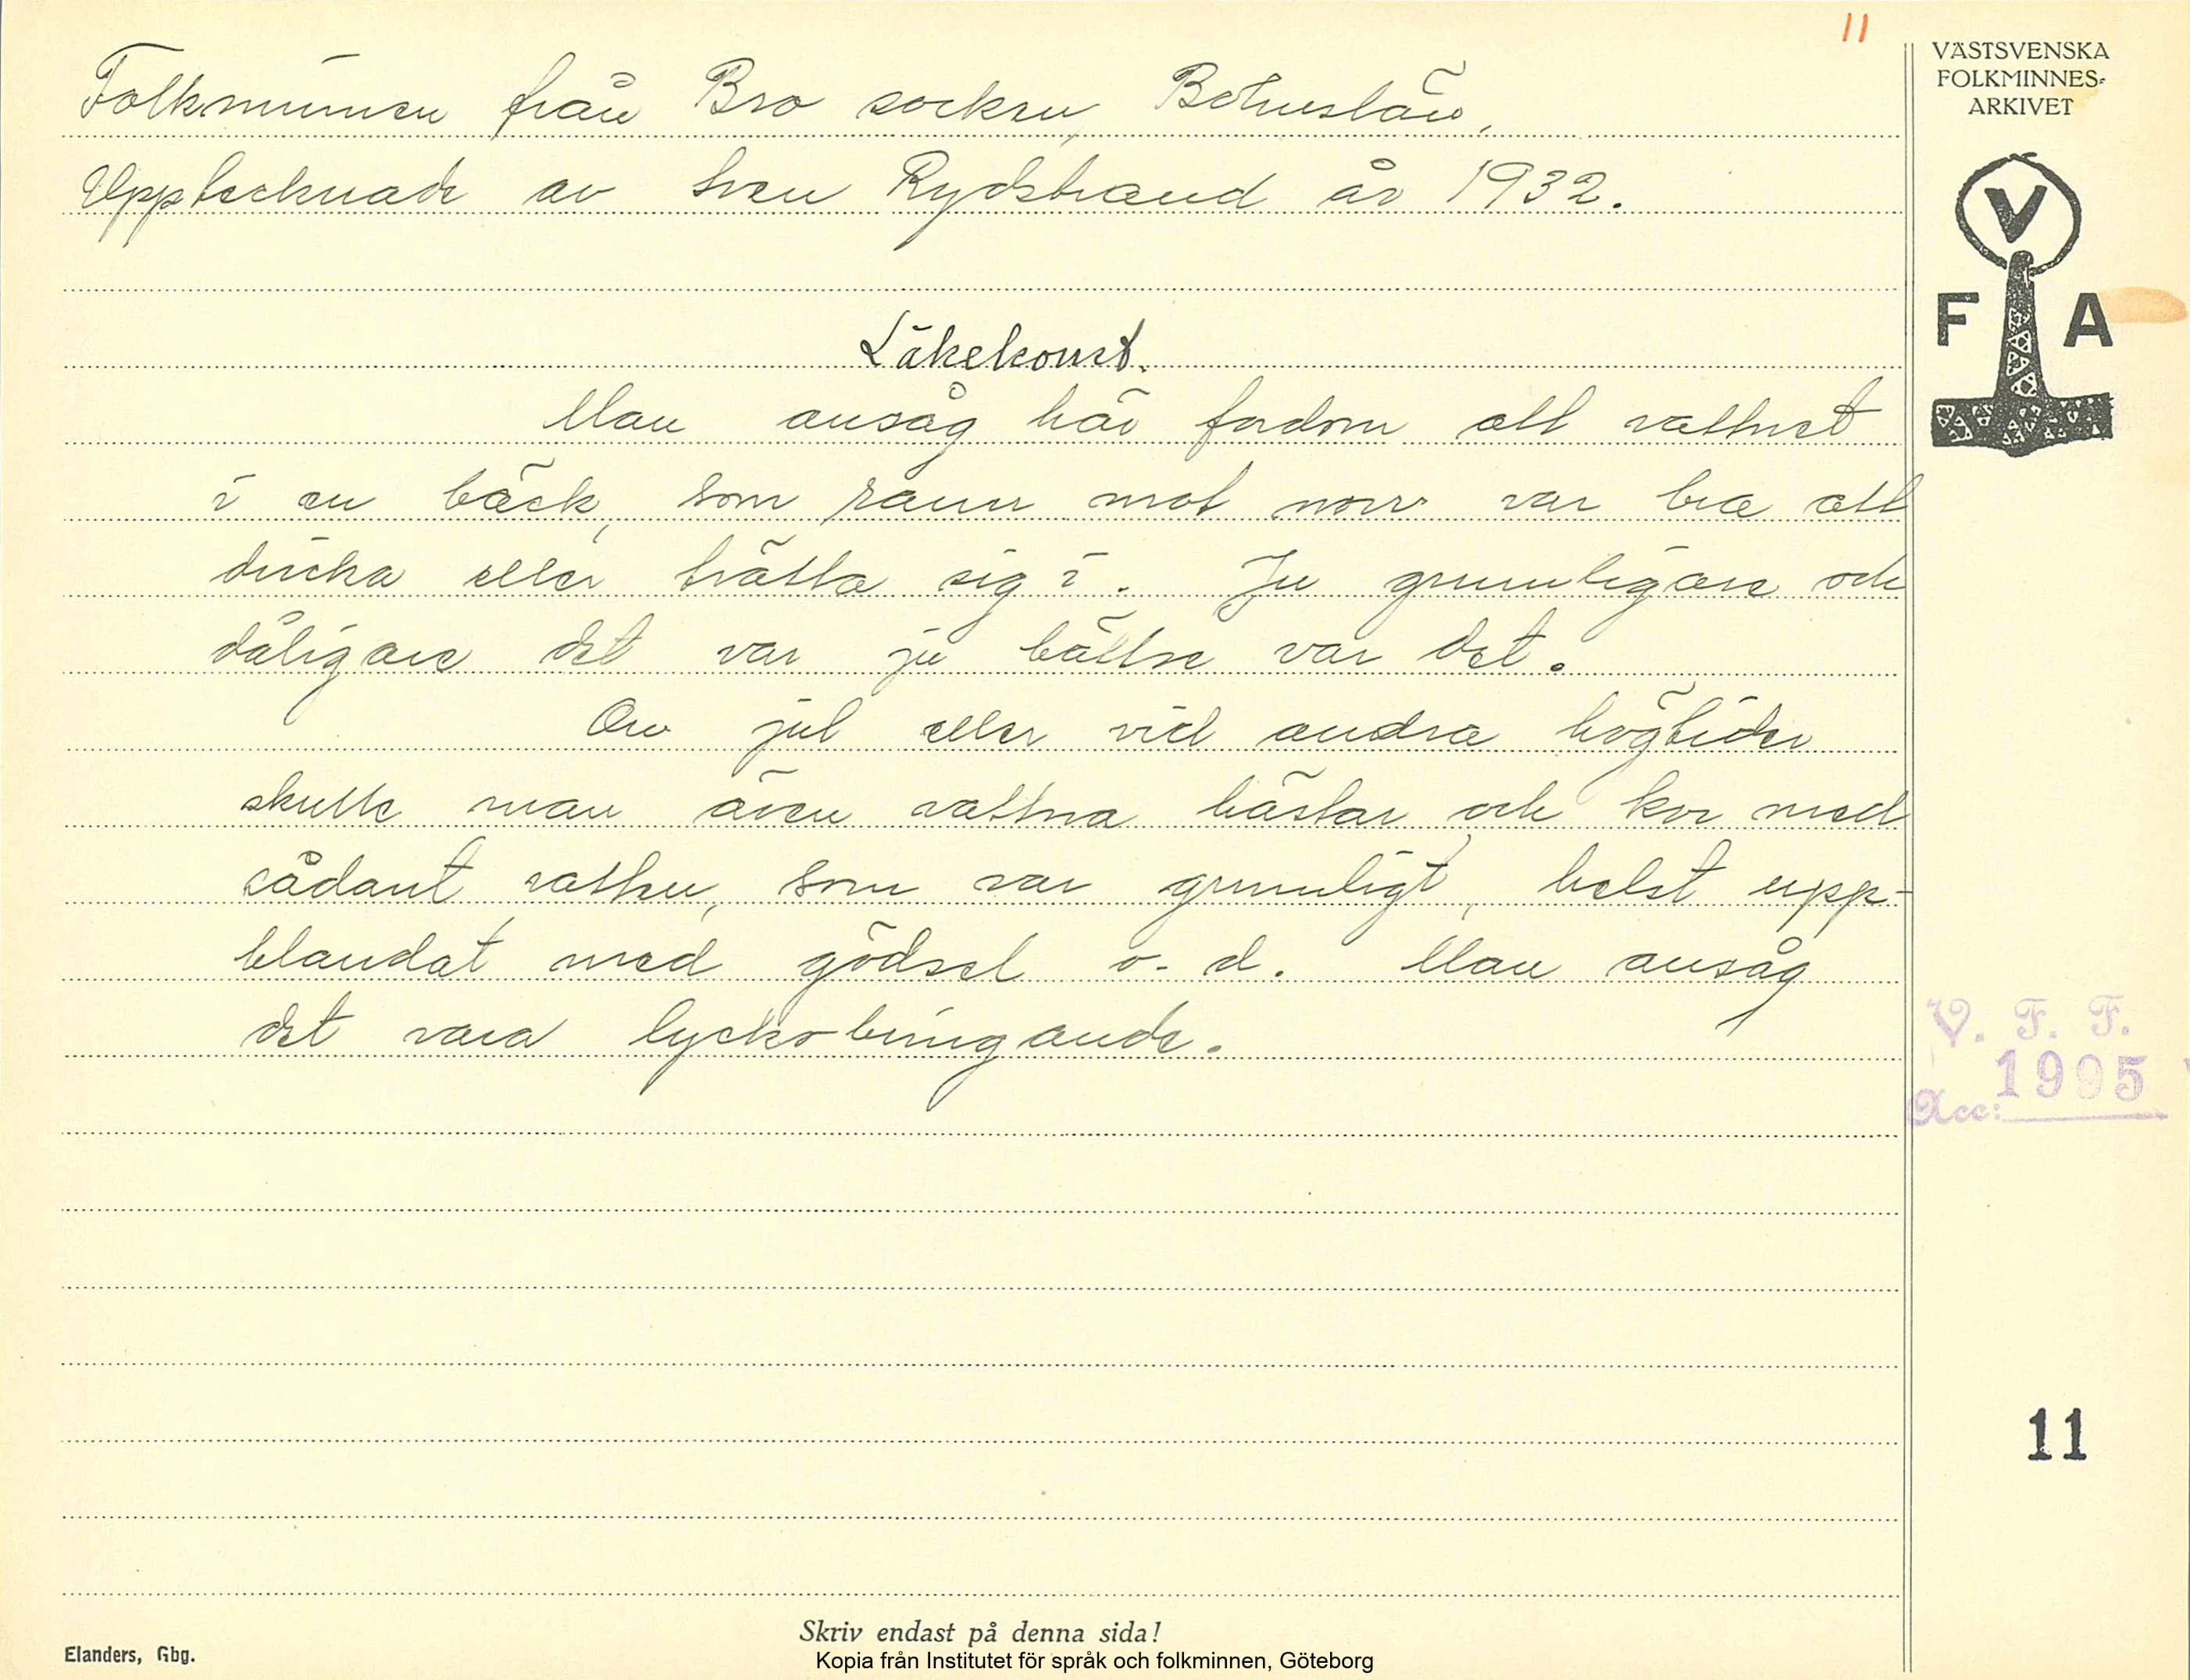 11
VÄSTSVENSKA
FOLKMINNES-
ARKIVET
Folkminnen från Bro socken, Bohuslän,
Upptecknade av Sven Rydstrand år 1932.
V
F A
Läkekonst.
Man ansåg här fordom att vattnet
i en bäck, som rann mot norr var bra att
dricka eller tvätta sig i. Ju grumligare och
dåligare det var ju bättre var det.
Om jul eller vid andra högtider
skulle man även vattna hästar och kor med
sådant vatten, som var grumligt, helst upp-
blandat med gödsel o. d. Man ansåg
det vara lyckobringande.
V. F. F.
Acc: 1995
11
Skriv endast på denna sida!
Elanders, Gbg.
Kopia från Institutet för språk och folkminnen, Göteborg